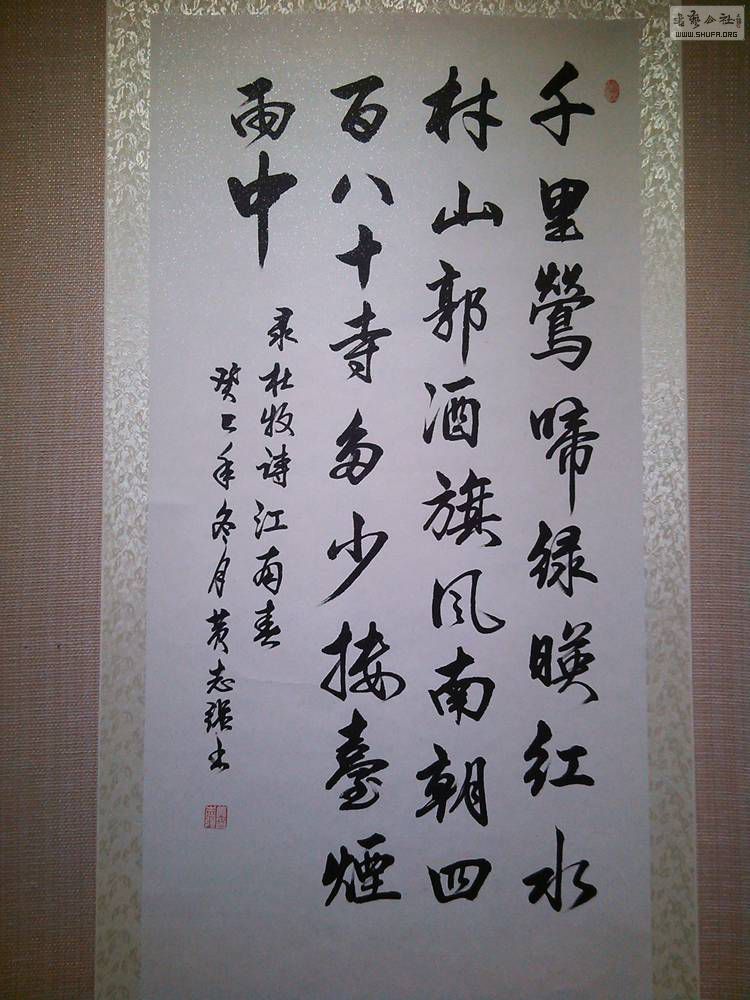 千里鶯啼绿暎红水
村山郭酒旗风南朝四
百八十寺多少楼臺煙
雨中
录杜牧诗江南春
癸巳年冬月黄志强书
書藝公社
WWW.SHUFA.ORG